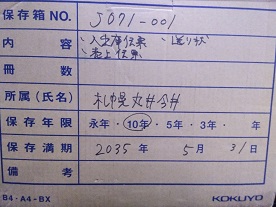 保存箱NO. J071-001
内容 ・入出庫伝票 ・送り状
・売上伝票
冊数
所属(氏名) 札幌丸井今井
保存年限 永年・10年・5年・3年・ 年
保存満期 2035年 5月 31日
備考
B4・A4-BX KOKUYO